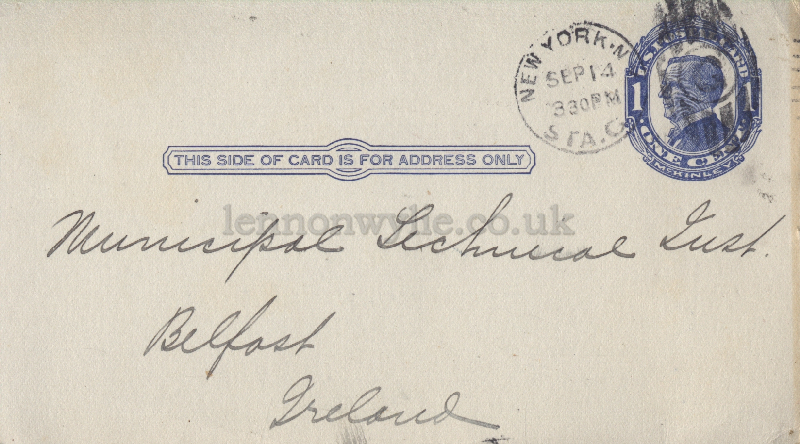 NEW YORK, N
SEP 14
3 30 PM
STA. O
1 1
ONE
McKINLEY
THIS SIDE OF CARD IS FOR ADDRESS ONLY
lennonwylie.co.uk
Municipal Technical Inst.
Belfast
Ireland